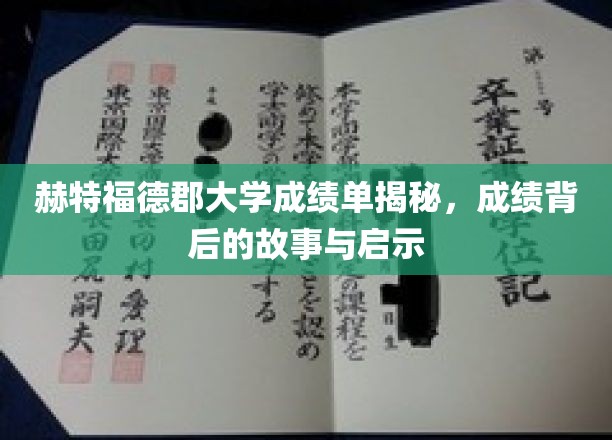 赫特福德郡大学成绩单揭秘，成绩背
后的故事与启示
第 号
卒業証 学位記
本学商学部 定の課程を
修めて本学 ことを認め
学士(商学)の する
平成
東京国際大学 田村愛理
東京国際大 長田尻嗣夫